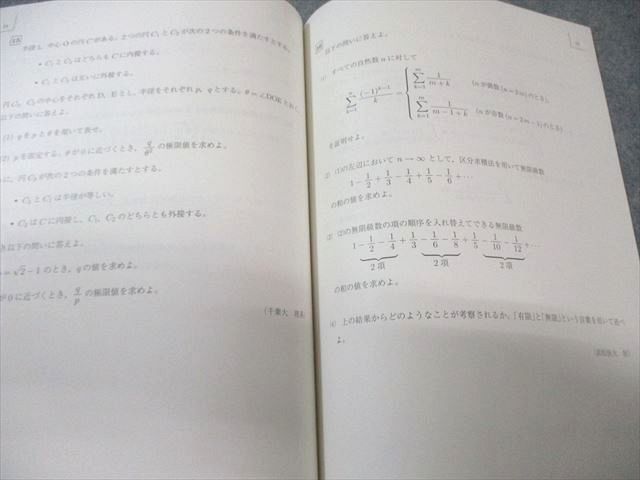 半径1, 中心Oの円Cがある。2つの円C₁とC₂が次の2つの条件を満たすとする。
• C₁とC₂はどちらもCに内接する。
• C₁とC₂は互いに外接する。
円C₁, C₂の中心をそれぞれD, Eとし, 半径をそれぞれp, qとする。θ=∠DOEとおく。
以下の問いに答えよ。
(1) qをpとθを用いて表せ。
(2) pを固定する。θが0に近づくとき, q/θ² の極限値を求めよ。
に, 円C₃が次の2つの条件を満たすとする。
• C₃とC₁は半径が等しい。
• C₃はCに内接し, C₁, C₂のどちらとも外接する。
き以下の問いに答えよ。
=√2−1のとき, qの値を求めよ。
が0に近づくとき, q/p の極限値を求めよ。
(千葉大
以下の問いに答えよ。
(1) すべての自然数nに対して
∑_{k=1}^{n} (−1)^{k−1}/k = { ∑_{k=1}^{m} 1/(m+k) (nが偶数(n=2m)のとき),
∑_{k=1}^{m} 1/(m−1+k) (nが奇数(n=2m−1)のとき)
を証明せよ。
(2) (1)の左辺において n→∞ として, 区分求積法を用いて無限級数
1−1/2+1/3−1/4+1/5−1/6+⋯
の和の値を求めよ。
(3) (2)の無限級数の項の順序を入れ替えてできる無限級数
1−1/2−1/4+1/3−1/6−1/8+1/5−1/10−1/12+⋯
2項 2項 2項
の和の値を求めよ。
(4) 上の結果からどのようなことが考察されるか。「有限」と「無限」という言葉を用いて述べ
よ。